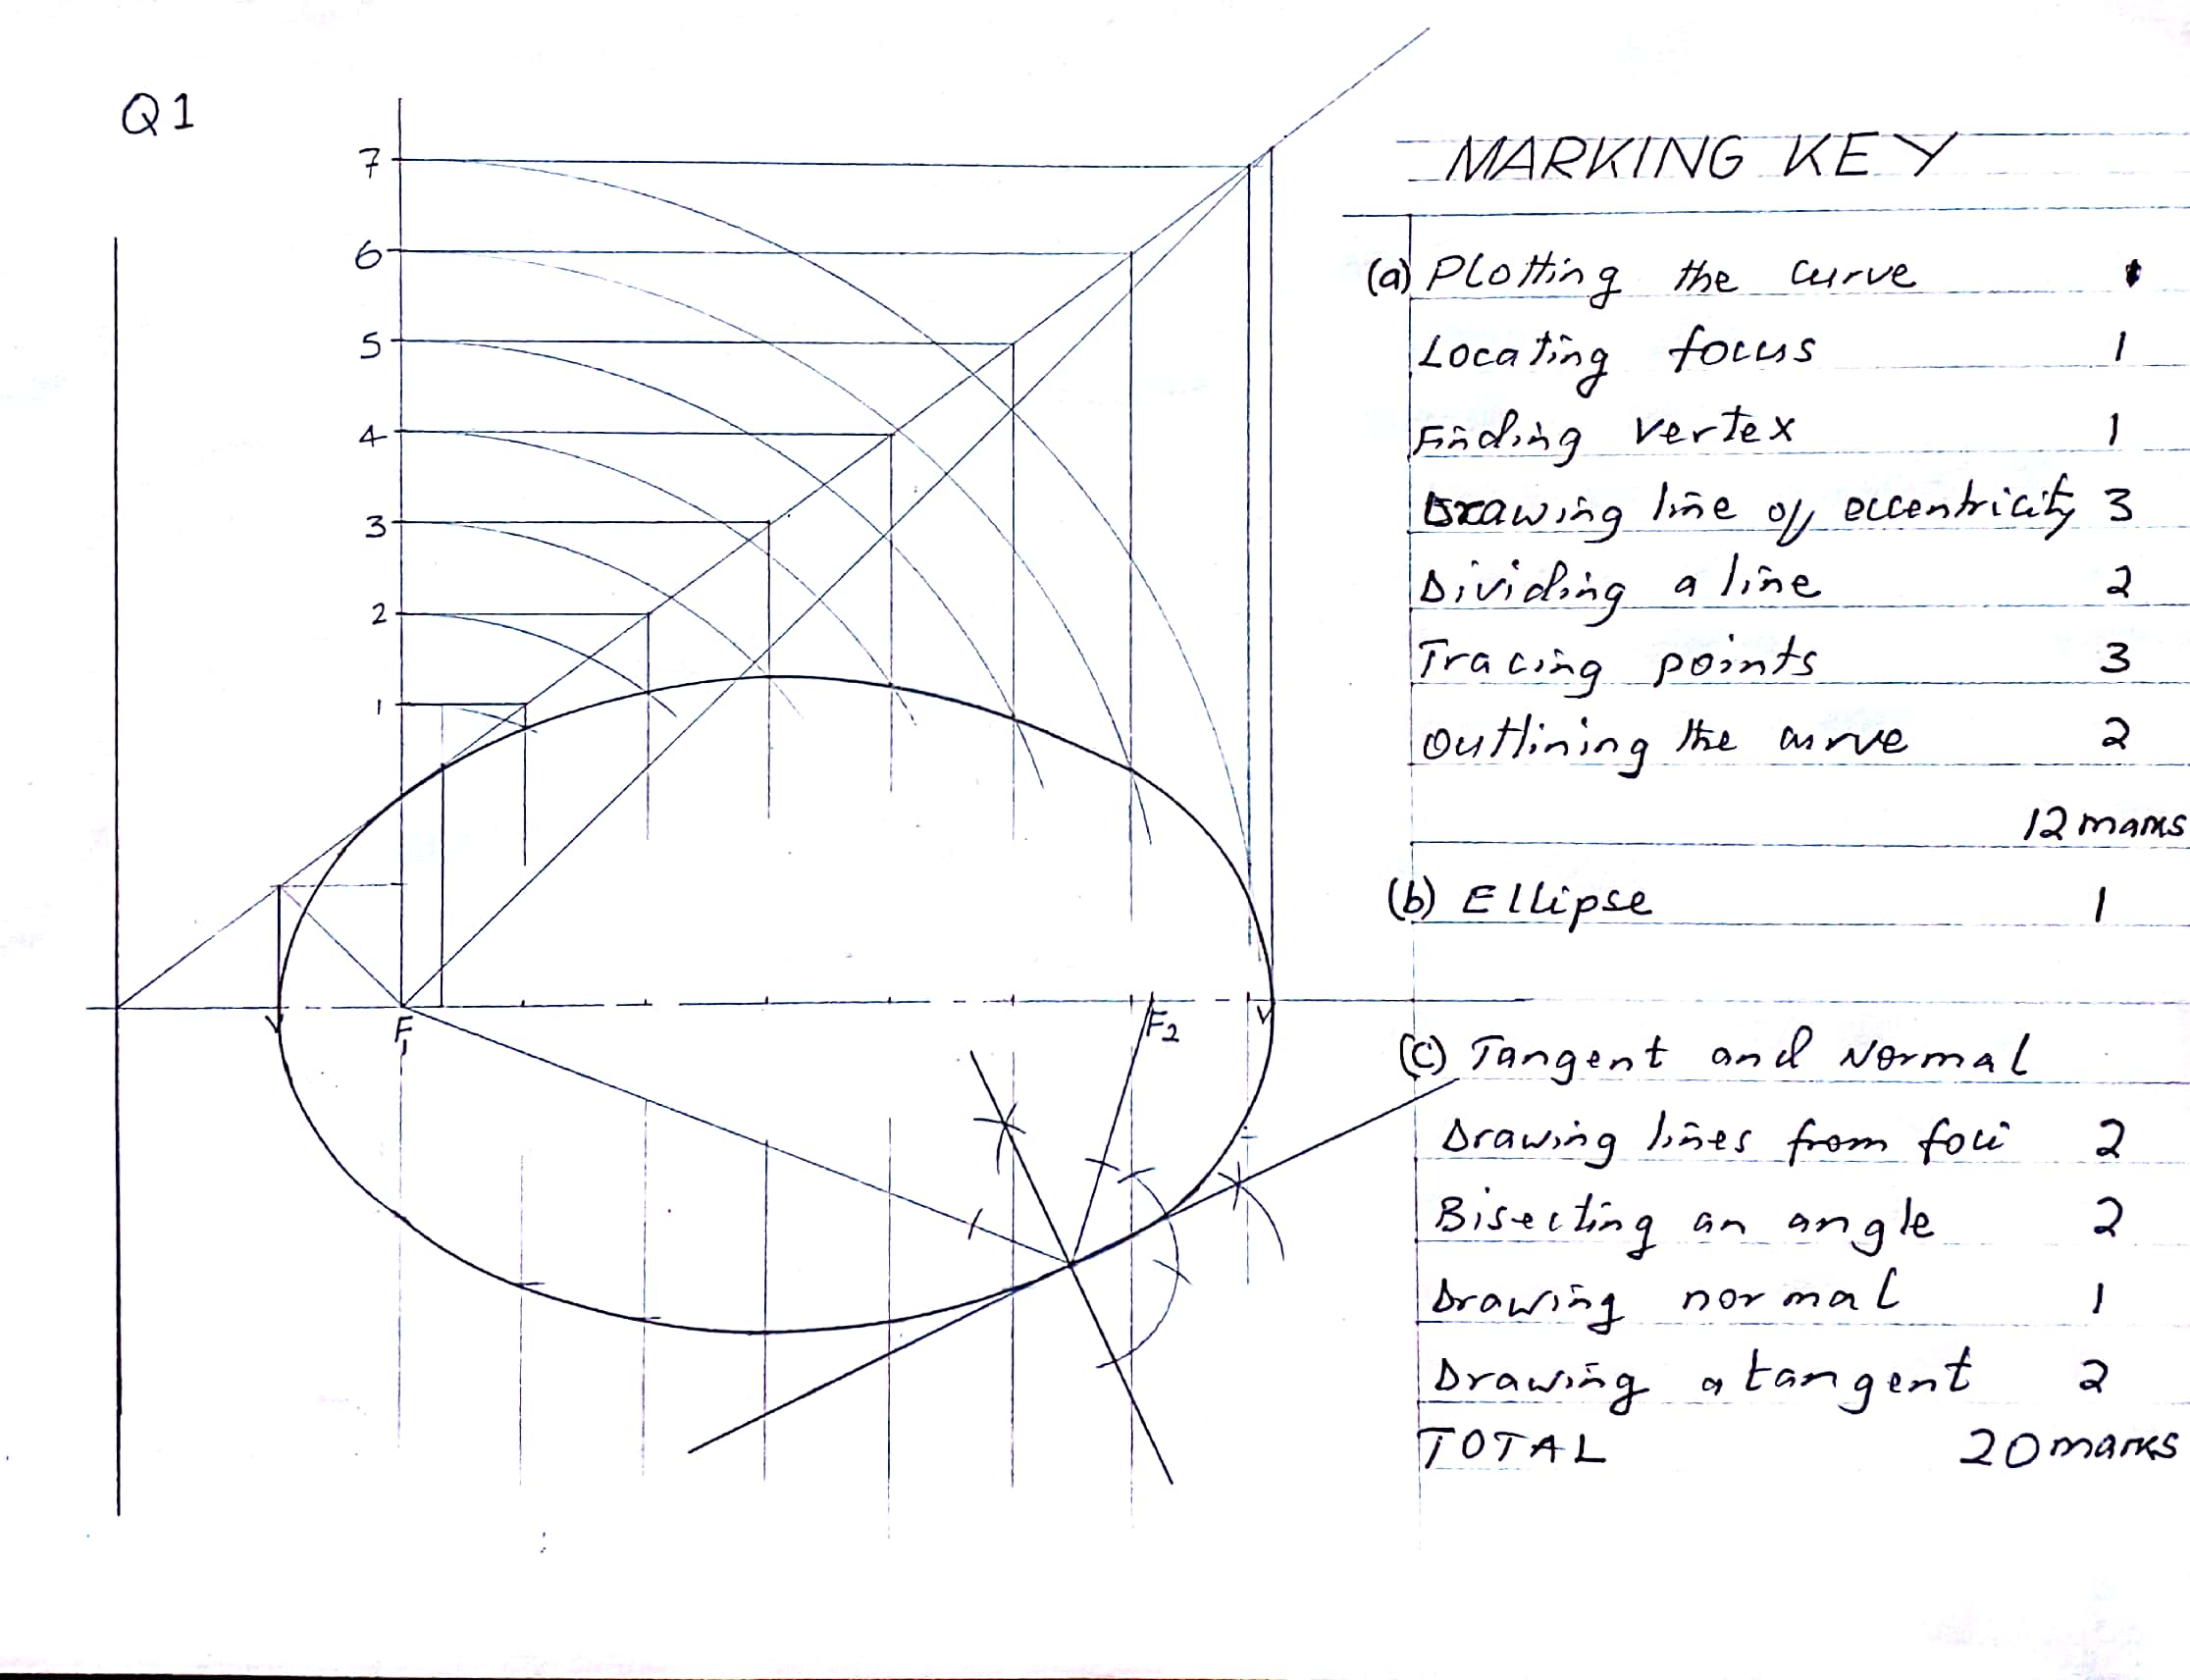 Q1
7
6
5
4
3
2
1
V
F1
F2
V
MARKING KEY
(a) Plotting the curve
Locating focus 1
Finding vertex 1
Drawing line of eccentricity 3
Dividing a line 2
Tracing points 3
Outlining the curve 2
12 marks
(b) Ellipse 1
(c) Tangent and Normal
Drawing lines from foci 2
Bisecting an angle 2
Drawing normal 1
Drawing a tangent 2
TOTAL 20 marks